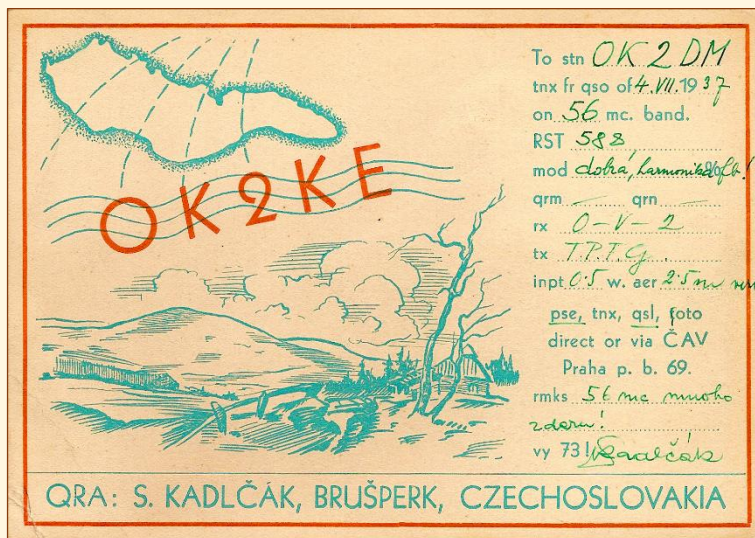 OK2KE
To stn OK2DM
tnx fr qso of 4.VII.1937
on 56 mc. band.
RST 588,
mod dobrá, harmonika fb!
qrm — qrn —
rx 0-V-2
tx T.P.T.G.
inpt 0.5 w. aer 2.5 m
pse, tnx, qsl, foto
direct or via ČAV
Praha p. b. 69.
rmks 56 mc mnoho
zdaru!
vy 73! Kadlčák
QRA: S. KADLČÁK, BRUŠPERK, CZECHOSLOVAKIA